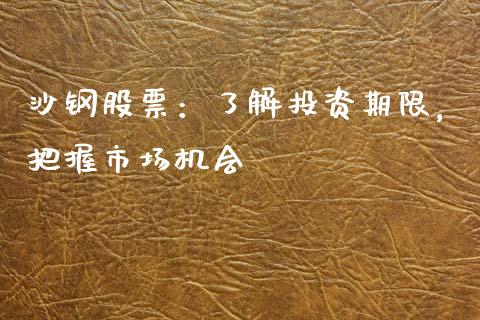 沙钢股票：了解投资期限，
把握市场机会